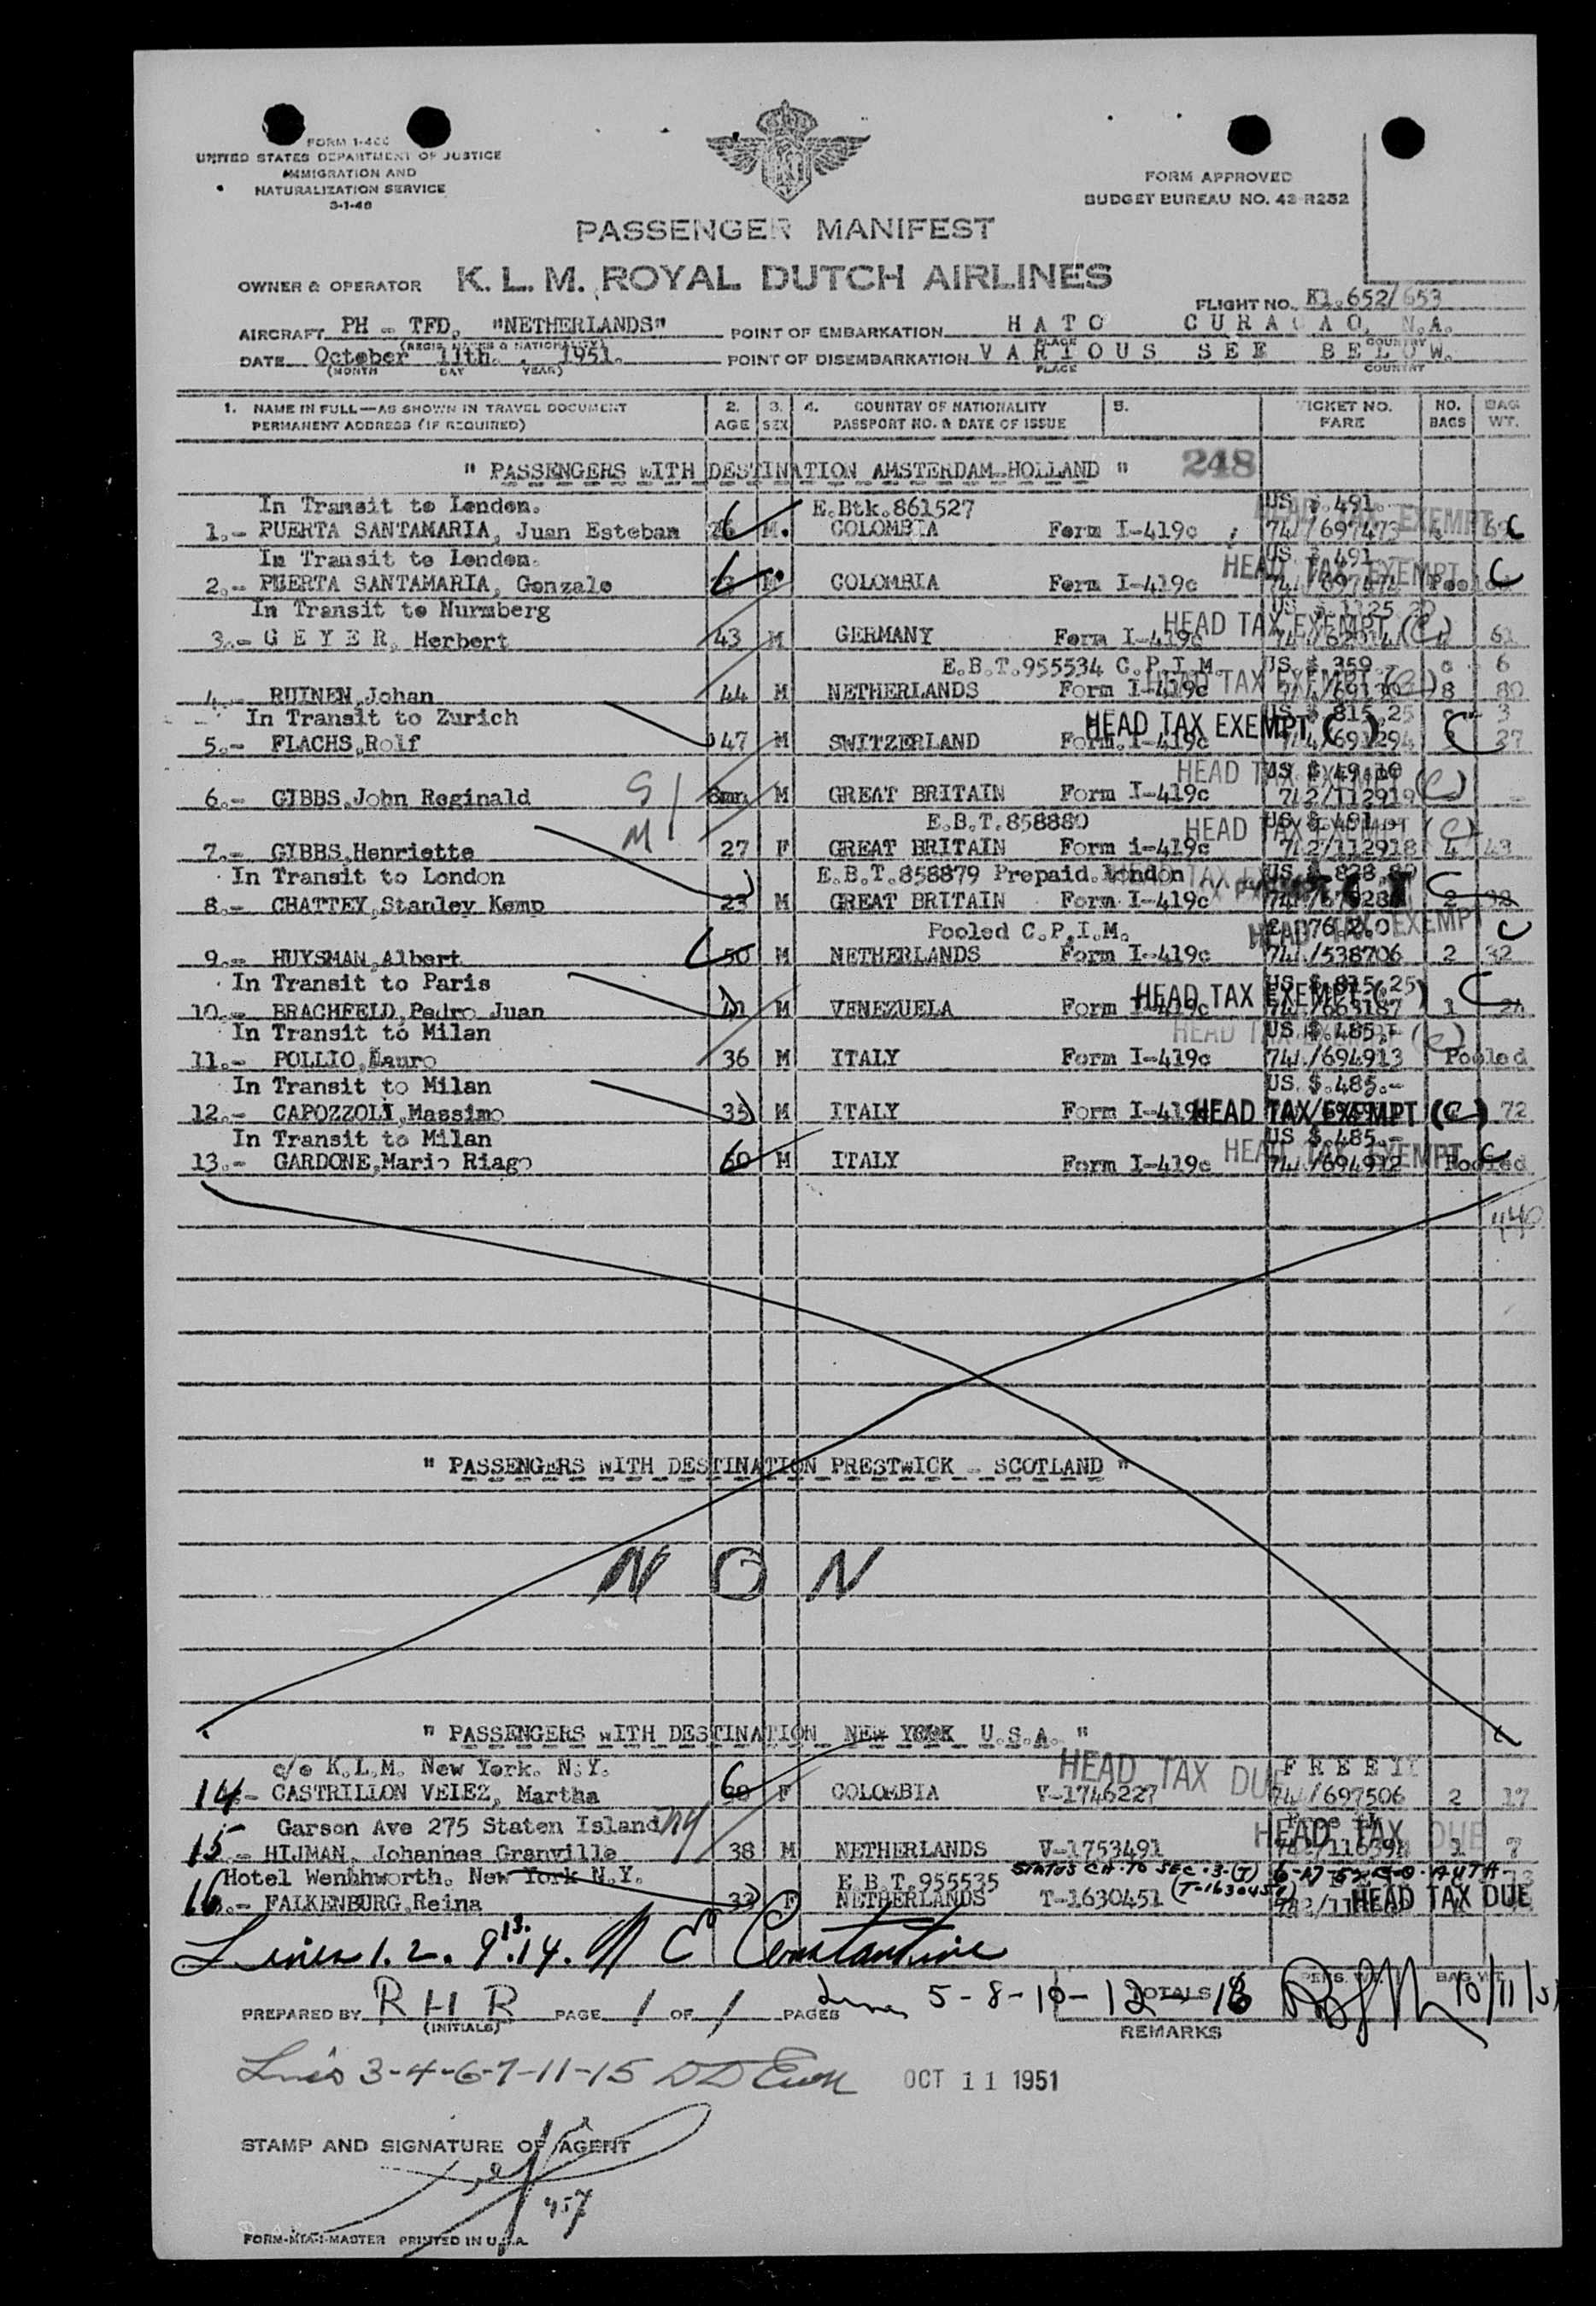 FORM I-466
UNITED STATES DEPARTMENT OF JUSTICE
IMMIGRATION AND
NATURALIZATION SERVICE
3-1-48
FORM APPROVED
BUDGET BUREAU NO. 43-R232
PASSENGER MANIFEST
OWNER & OPERATOR K. L. M. ROYAL DUTCH AIRLINES
FLIGHT NO. Kl.652/653
AIRCRAFT PH - TFD. "NETHERLANDS" POINT OF EMBARKATION HATO CURACAO, N.A.
PLACE COUNTRY
DATE October 11th. , 1951. POINT OF DISEMBARKATION VARIOUS SEE BELOW.
(MONTH DAY YEAR) PLACE COUNTRY
1. NAME IN FULL—AS SHOWN IN TRAVEL DOCUMENT 2. 3. 4. COUNTRY OF NATIONALITY 5. TICKET NO. NO. BAG
PERMANENT ADDRESS (IF REQUIRED) AGE SEX PASSPORT NO. & DATE OF ISSUE FARE BAGS WT.
" PASSENGERS WITH DESTINATION AMSTERDAM-HOLLAND " 248
In Transit to London. E.Btk.861527 US $.491.
1.- PUERTA SANTAMARIA, Juan Esteban M. COLOMBIA Form I-419c 741/697473 EXEMPT C
In Transit to London. US $.491
2.- PUERTA SANTAMARIA, Gonzalo M COLOMBIA Form I-419c HEAD TAX EXEMPT Pooled C
In Transit to Nurmberg
3.- G E Y E R, Herbert 43 M GERMANY Form I-419c HEAD TAX EXEMPT (C) 61
E.B.T.955534 C.P.I.M. US $.359.- 6
4.- RUINEN,Johan 44 M NETHERLANDS Form I-419c HEAD TAX EXEMPT 8 80
In Transit to Zurich US $.815.25 3
5.- FLACHS,Rolf 47 M SWITZERLAND Form.I-419c HEAD TAX EXEMPT ( ) C 27
6.- GIBBS,John Reginald 8mn M GREAT BRITAIN Form I-419c HEAD TAX EXEMPT 742/112919 (C)
E.B.T.858880
7.- GIBBS,Henriette M 27 F GREAT BRITAIN Form i-419c HEAD TAX EXEMPT (C) 742/112918 4 43
In Transit to London E.B.T.858879 Prepaid.London US $.828.80
8.- CHATTEY,Stanley Kemp 23 M GREAT BRITAIN Form I-419c 2
Pooled C.P.I.M. HEAD TAX EXEMPT C
9.- HUYSMAN,Albert 50 M NETHERLANDS Form I-419c 741/538706 2 32
In Transit to Paris US $.815.25
10.- BRACHFELD,Pedro Juan M VENEZUELA Form I-419c HEAD TAX EXEMPT ( ) C 1
In Transit to Milan US $.485.-
11.- POLLIO,Mauro 36 M ITALY Form I-419c 741/694913 Pooled
In Transit to Milan US $.485.-
12.- CAPOZZOLI,Massimo 35 M ITALY Form I-419c HEAD TAX EXEMPT (C) 72
In Transit to Milan US $.485.-
13.- GARDONE,Mario Riago M ITALY Form I-419c HEAD TAX EXEMPT 741/694912 Pooled C
440
" PASSENGERS WITH DESTINATION PRESTWICK - SCOTLAND "
N O N
" PASSENGERS WITH DESTINATION NEW YORK U.S.A. "
c/o K.L.M. New York. N.Y. HEAD TAX DUE F R E E
14- CASTRILLON VELEZ, Martha F COLOMBIA V-1746227 741/697506 2 17
Garson Ave 275 Staten Island NY HEAD TAX DUE
15.- HIJMAN, Johannas Granville 38 M NETHERLANDS V-1753491 1 7
Hotel Wenhhworth. New York N.Y. E.B.T.955535 STATUS CH. TO SEC. 3-(7)
16.- FALKENBURG,Reina 33 F NETHERLANDS T-1630451 HEAD TAX DUE
Lines 1. 2. 9. 13. 14. Constantine
PERS. WT. BAG WT.
PREPARED BY R H R PAGE 1 OF 1 PAGES Lines 5-8-10-12-16 TOTALS 10/11/51
(INITIALS)
REMARKS
Lines 3-4-6-7-11-15 OCT 11 1951
STAMP AND SIGNATURE OF AGENT
957
PRINTED IN U.S.A.